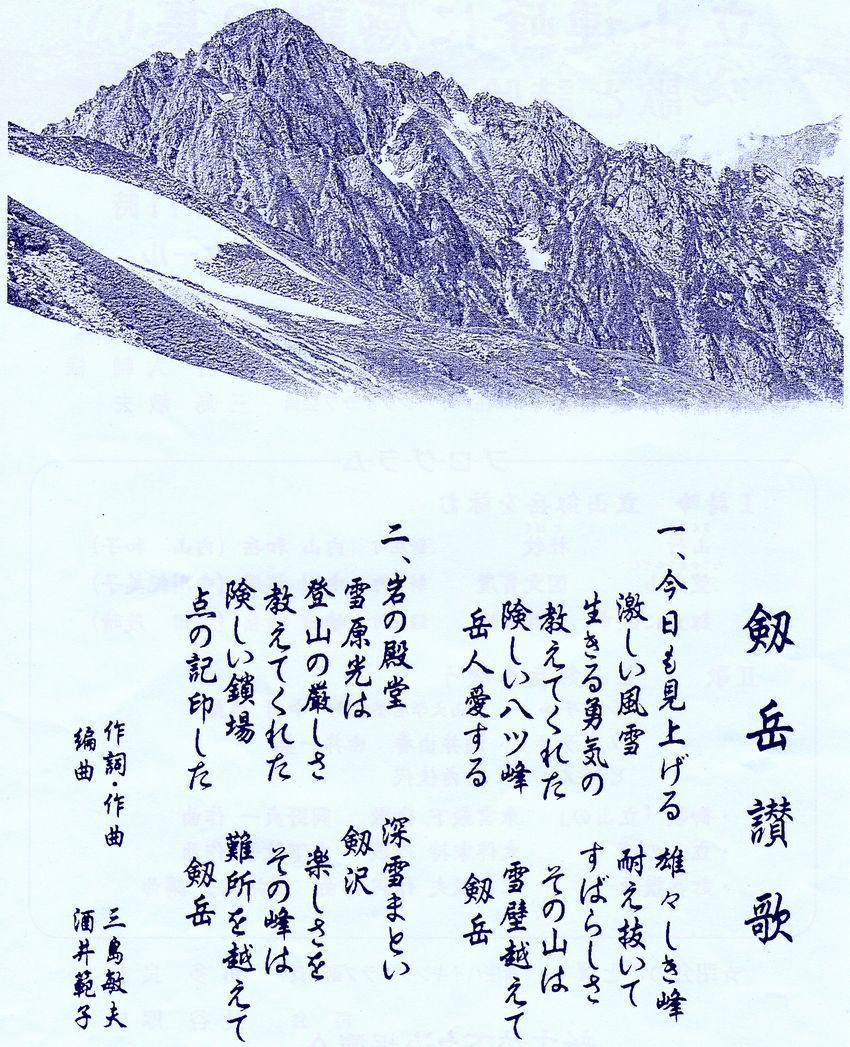 剱岳讃歌
一、今日も見上げる 雄々しき峰
激しい風雪 耐え抜いて
生きる勇気の すばらしさ
教えてくれた その山は
険しい八ツ峰 雪壁越えて
岳人愛する 剱岳
二、岩の殿堂 深雪まとい
雪原光は 剱沢
登山の厳しさ 楽しさを
教えてくれた その峰は
険しい鎖場 難所を越えて
点の記印した 剱岳
作詞・作曲 三島敏夫
編曲 酒井範子
プログラム